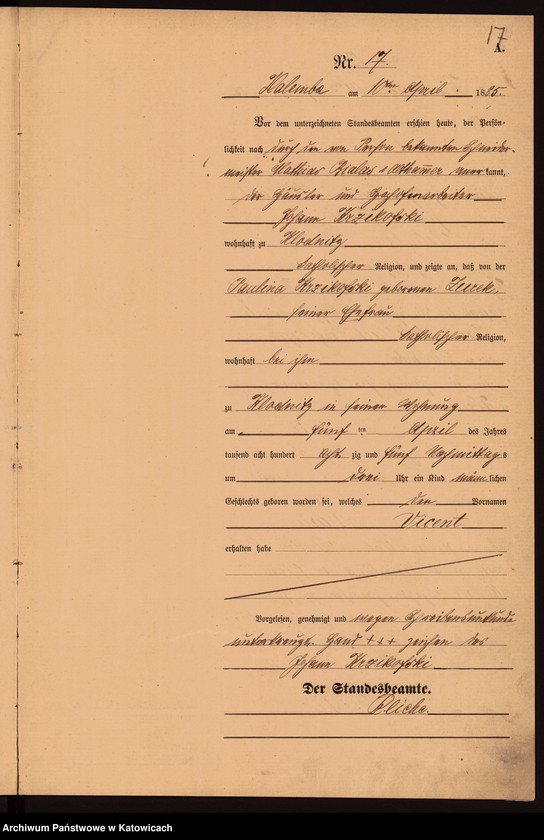 17
A.
Nr. 17.
Halemba am 10ten April 1885.
Vor dem unterzeichneten Standesbeamten erschien heute, der Persön-
lichkeit nach durch den von Person bekannten Schneider-
meister Mathias Bialas aner kannt,
der Häusler und
Johann Krzikofski
wohnhaft zu Klodnitz
katholischer Religion, und zeigte an, daß von der
Paulina Krzikofski geborenen Zurek,
seiner Ehefrau
katholischer Religion,
wohnhaft bei ihm
zu Klodnitz in seiner Wohnung
am fünf ten April des Jahres
tausend acht hundert acht zig und fünf Nachmittags
um drei Uhr ein Kind männlichen
Geschlechts geboren worden sei, welches den Vornamen
Vicent
erhalten habe
Vorgelesen, genehmigt und wegen Schreibensunkunde
unterkreuzt. Hand +++ zeichen des
Johann Krzikofski
Der Standesbeamte.
Archiwum Państwowe w Katowicach